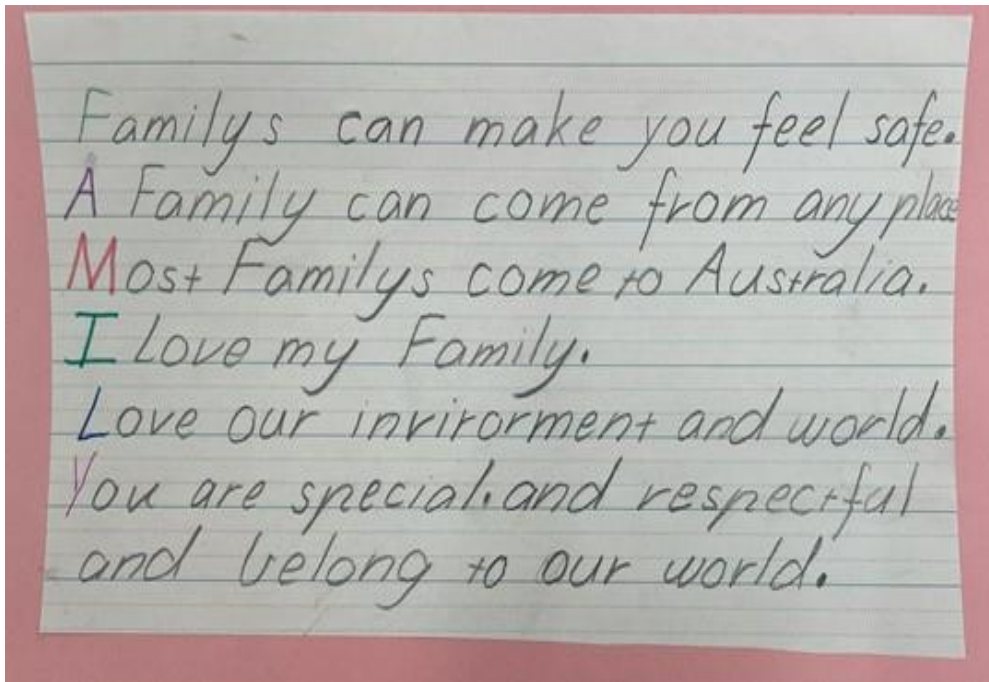 Familys can make you feel safe.
A Family can come from any place
Most Familys come to Australia.
I love my Family.
Love our invirorment and world.
You are special.and respectful
and belong to our world.